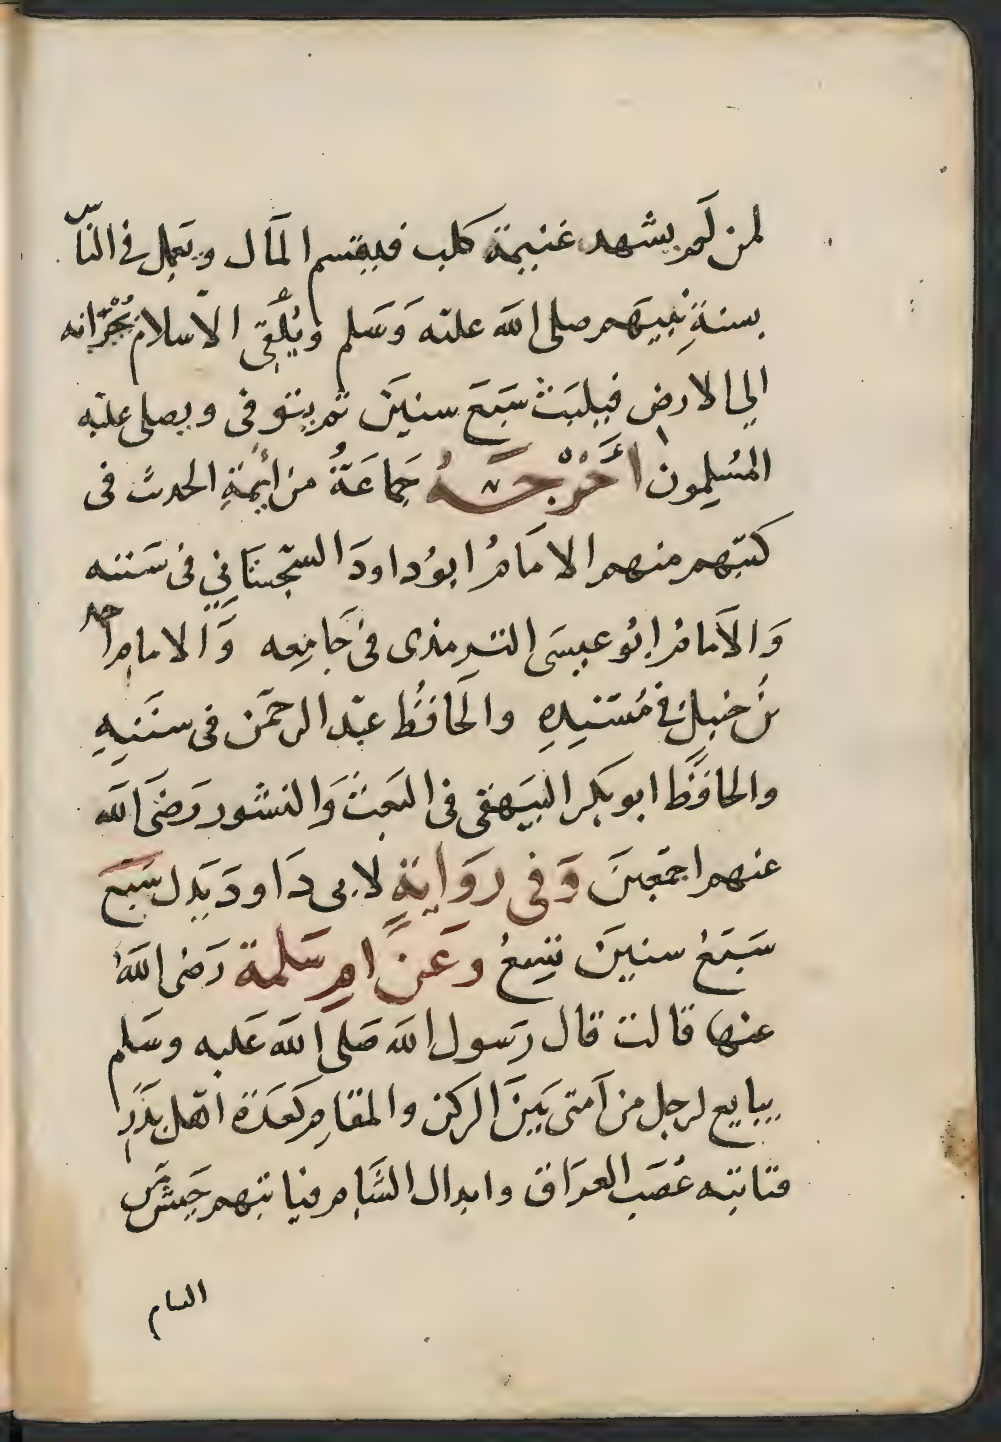 لمن لَم يشهد غنيمة كلب فيقتسم المَال ويَعمل في النّاس
بسنةِ نبيهَم صلى الله عليه وَسَلم ويُلقِى الاسلام بجُرّانه
الى الارض فيلبَث سَبعَ سنينَ ثم يتوفى ويصلى عليه
المُسلِمون اَخْرجَـهُ جَماعَةُ من ائمةِ الحدث فى
كتبهم منهم الامَامُ ابوُداودَ السّجستَانيِ فى سَننه
وَالاَمامُ ابُو عيسَى الترمذى فى جَامِعه وَالامام احمد
بنُ حنبل في مُسَنيدِهِ والحَافظُ عبّد الرحمَن فى سننَهِ
والحافَظ ابو بكر البَيهقى فى البَعثَ وَالنشور رَضَى الله
عنهم اجمَعينَ وَفى رِوَايةٍ لابى دَاودَ بَدل سَبَع
سَبَعُ سنينَ تسِعُ وعَن امِ سَلمة رَضى اللهُ
عنها قالت قال رَسول الله صَلى الله عَليه وسَلم
يبايع لرجل من اَمتى بَينَ الركن والمقامِ كَعدَة اهَل بَدَرِ
فتاتيه عُصَب العرَاق وابدال الشَام فياتيهم جَيشَ من
السام